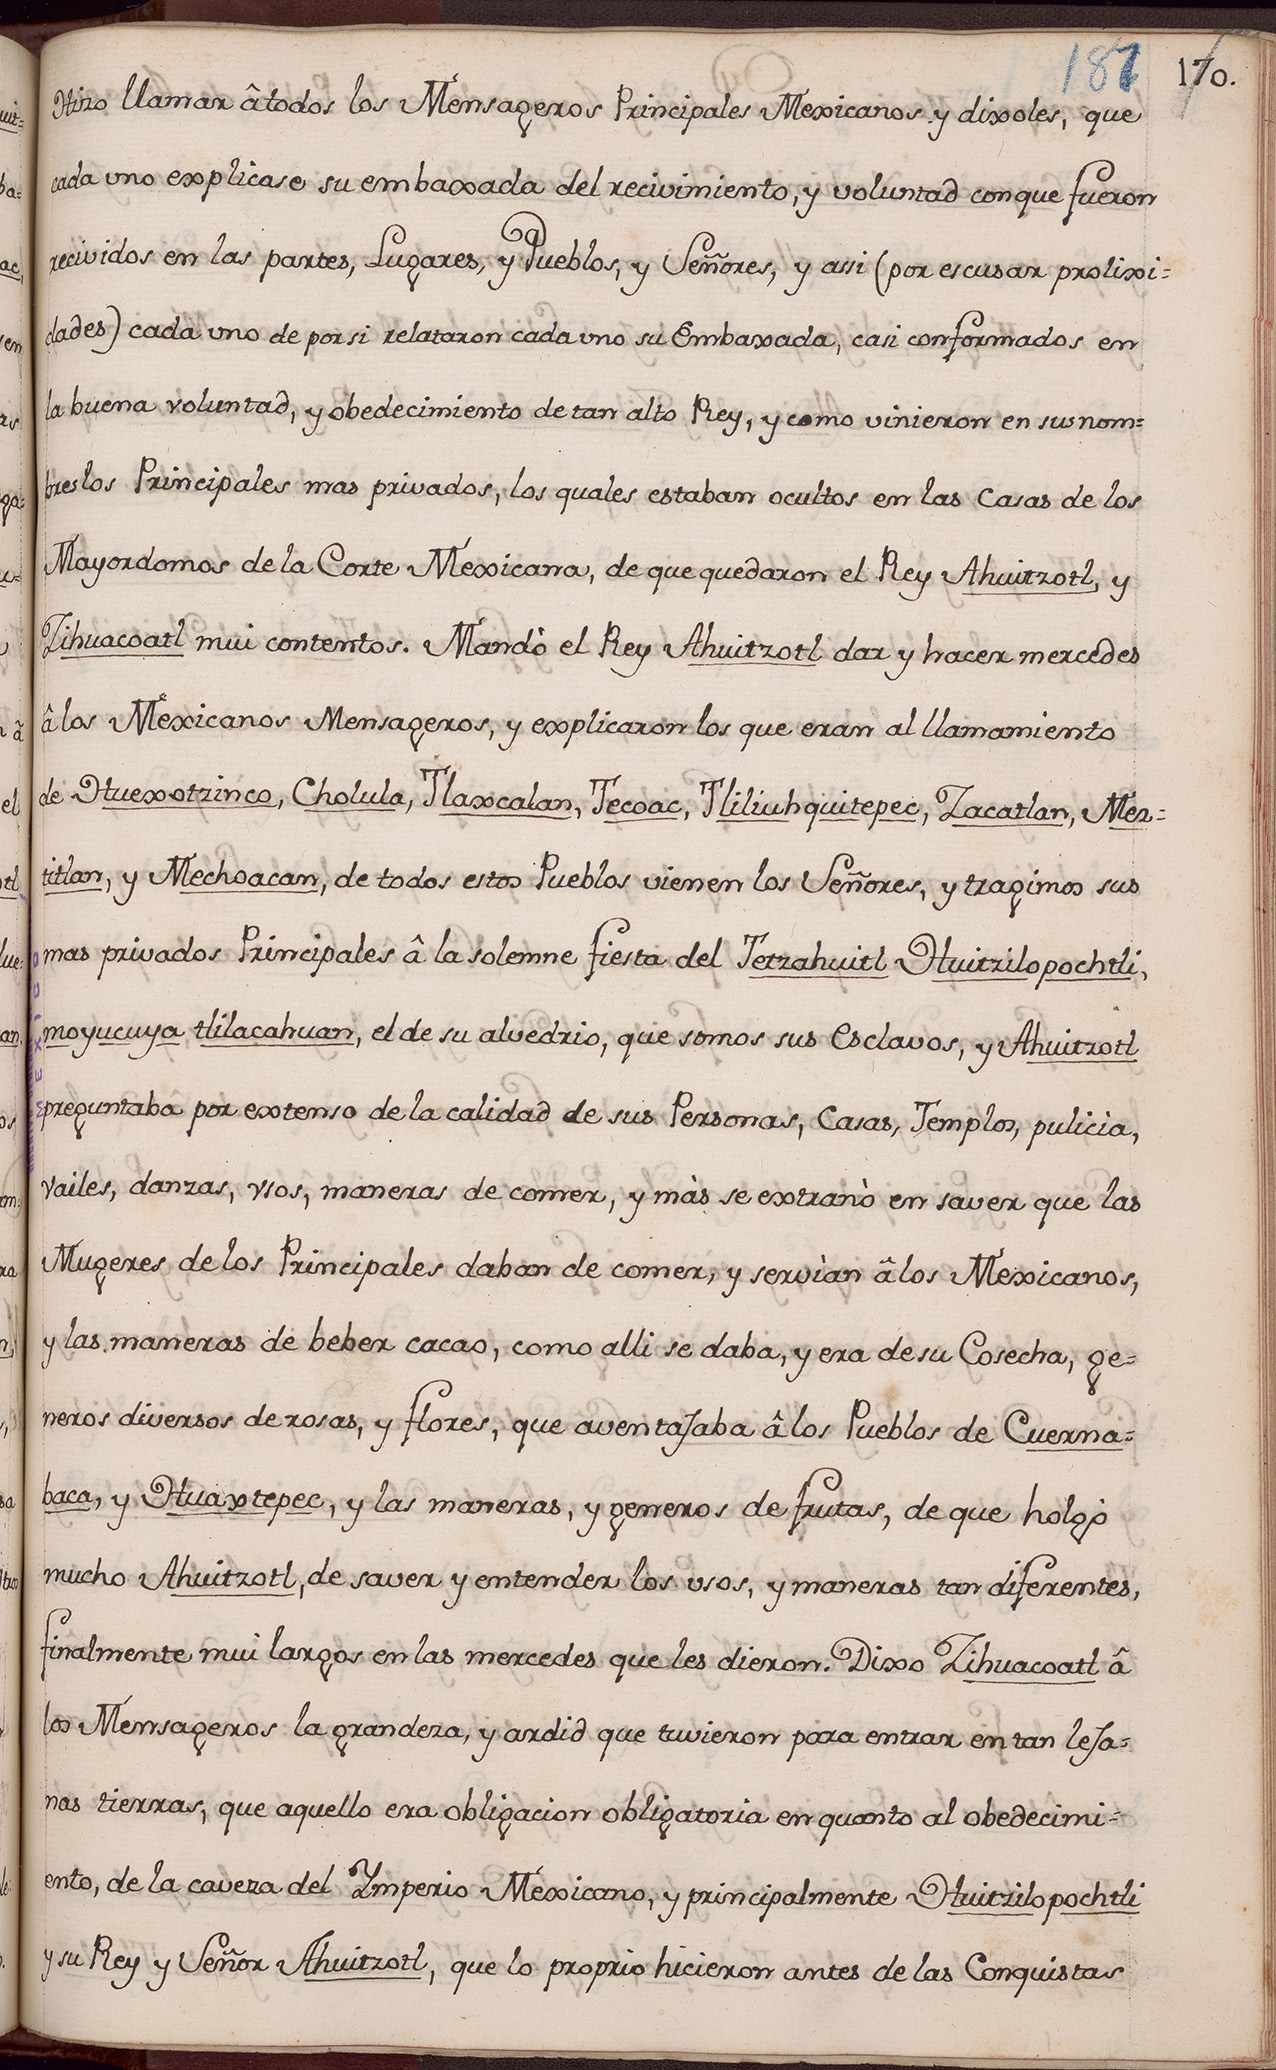 187 170.
Hizo llamar âtodos los Mensageros Principales Mexicanos y dixoles, que
cada vno explicase su embaxada del recivimiento, y voluntad conque fueron
recividos en las partes, Lugares, y Pueblos, y Señores, y assi (por escusar prolixi=
dades) cada vno de porsi relataron cada vno su Embaxada, casi conformados en
la buena voluntad, y obedecimiento de tan alto Rey, y como vinieron en sus nom=
bres los Principales mas privados, los quales estaban ocultos en las Casas de los
Mayordomos de la Corte Mexicana, de que quedaron el Rey Ahuitzotl, y
Zihuacoatl mui contentos. Mandò el Rey Ahuitzotl dar y hacer mercedes
â los Mexicanos Mensageros, y explicaron los que eran al llamamiento
de Huexotzinco, Cholula, Tlaxcalan, Tecoac, Tliliuhquitepec, Zacatlan, Mez=
titlan, y Mechoacan, de todos estos Pueblos vienen los Señores, y tragimos sus
mas privados Principales â la solemne fiesta del Tetzahuitl Huitzilopochtli,
moyucuya tlilacahuan, el de su alvedrio, que somos sus Esclavos, y Ahuitzotl
preguntaba por extenso de la calidad de sus Personas, Casas, Templos, pulicia,
vailes, danzas, vsos, maneras de comer, y màs se extranò en saver que las
Mugeres de los Principales daban de comer, y servìan â los Mexicanos,
y las maneras de beber cacao, como alli se daba, y era de su Cosecha, ge=
neros diversos de rosas, y flores, que aventaJaba â los Pueblos de Cuerna=
baca, y Huaxtepec, y las maneras, y generos de frutas, de que holgò
mucho Ahuitzotl, de saver y entender los vsos, y maneras tan diferentes,
finalmente mui largos en las mercedes que les dieron. Dixo Zihuacoatl â
los Mensageros la grandeza, y ardid que tuvieron para entrar en tan leJa=
nas tierras, que aquello era obligacion obligatoria en quanto al obedecimi=
ento, de la caveza del Ymperio Mexicano, y principalmente Huitzilopochtli
y su Rey y Señor Ahuitzotl, que lo proprio hicieron antes de las Conquistas